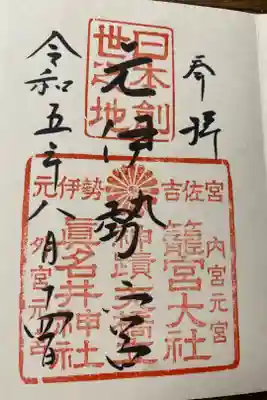 奉拝
日本創
世之地
元伊勢之宮
令和五年八月十四日
元伊勢 吉佐宮
内宮元宮
籠宮大社
眞名井神社
外宮元宮